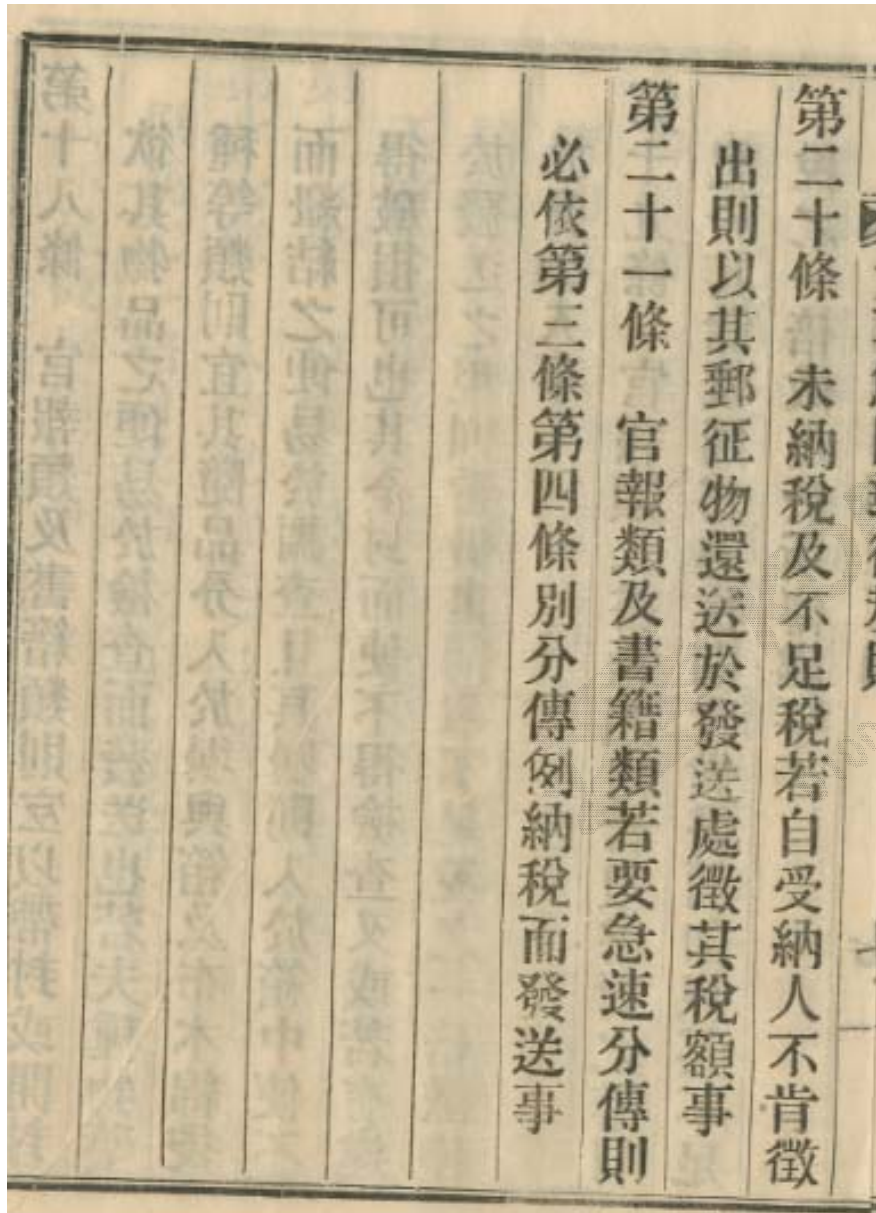 第二十條　未納稅及不足稅若自受納人不肯徵
出則以其郵征物還送於發送處徵其稅額事
第二十一條　官報類及書籍類若要急速分傳則
必依第三條第四條別分傳例納稅而發送事